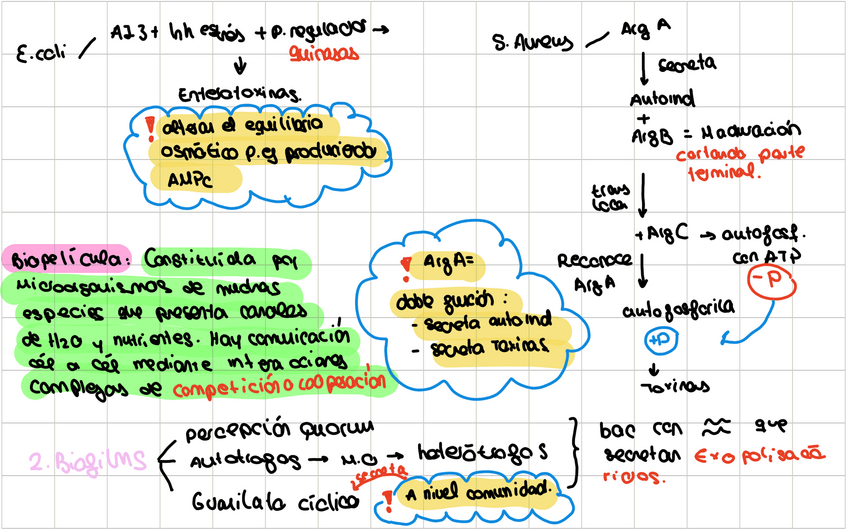 E.coli / AI3 + hh estrés + p. regulador →
quinasas
Enterotoxinas.
! alteran el equilibrio
osmótico p.ej produciendo
AMPc
S. Aureus / Arg A
secreta
Autoind
+
ArgB = Maduración
cortando parte
terminal.
trans
loca
+ ArgC → autofosf.
con ATP
- P
Reconoce
ArgA
autofosforila
+P
Toxinas
Biopelícula: Constituida por
microorganismos de muchas
especies que presenta canales
de H2O y nutrientes. Hay comunicación
cél a cél mediante interacciones
complejas de competición o cooperación
! ArgA =
doble función:
- secreta autoind
- secreta toxinas
2. Biofilms
percepción quorum
Autótrofos → M.O → heterótrofos
secreta
Guanilato cíclico
! A nivel comunidad.
bac con ≈ que
secretan Exopolisacá
ridos.